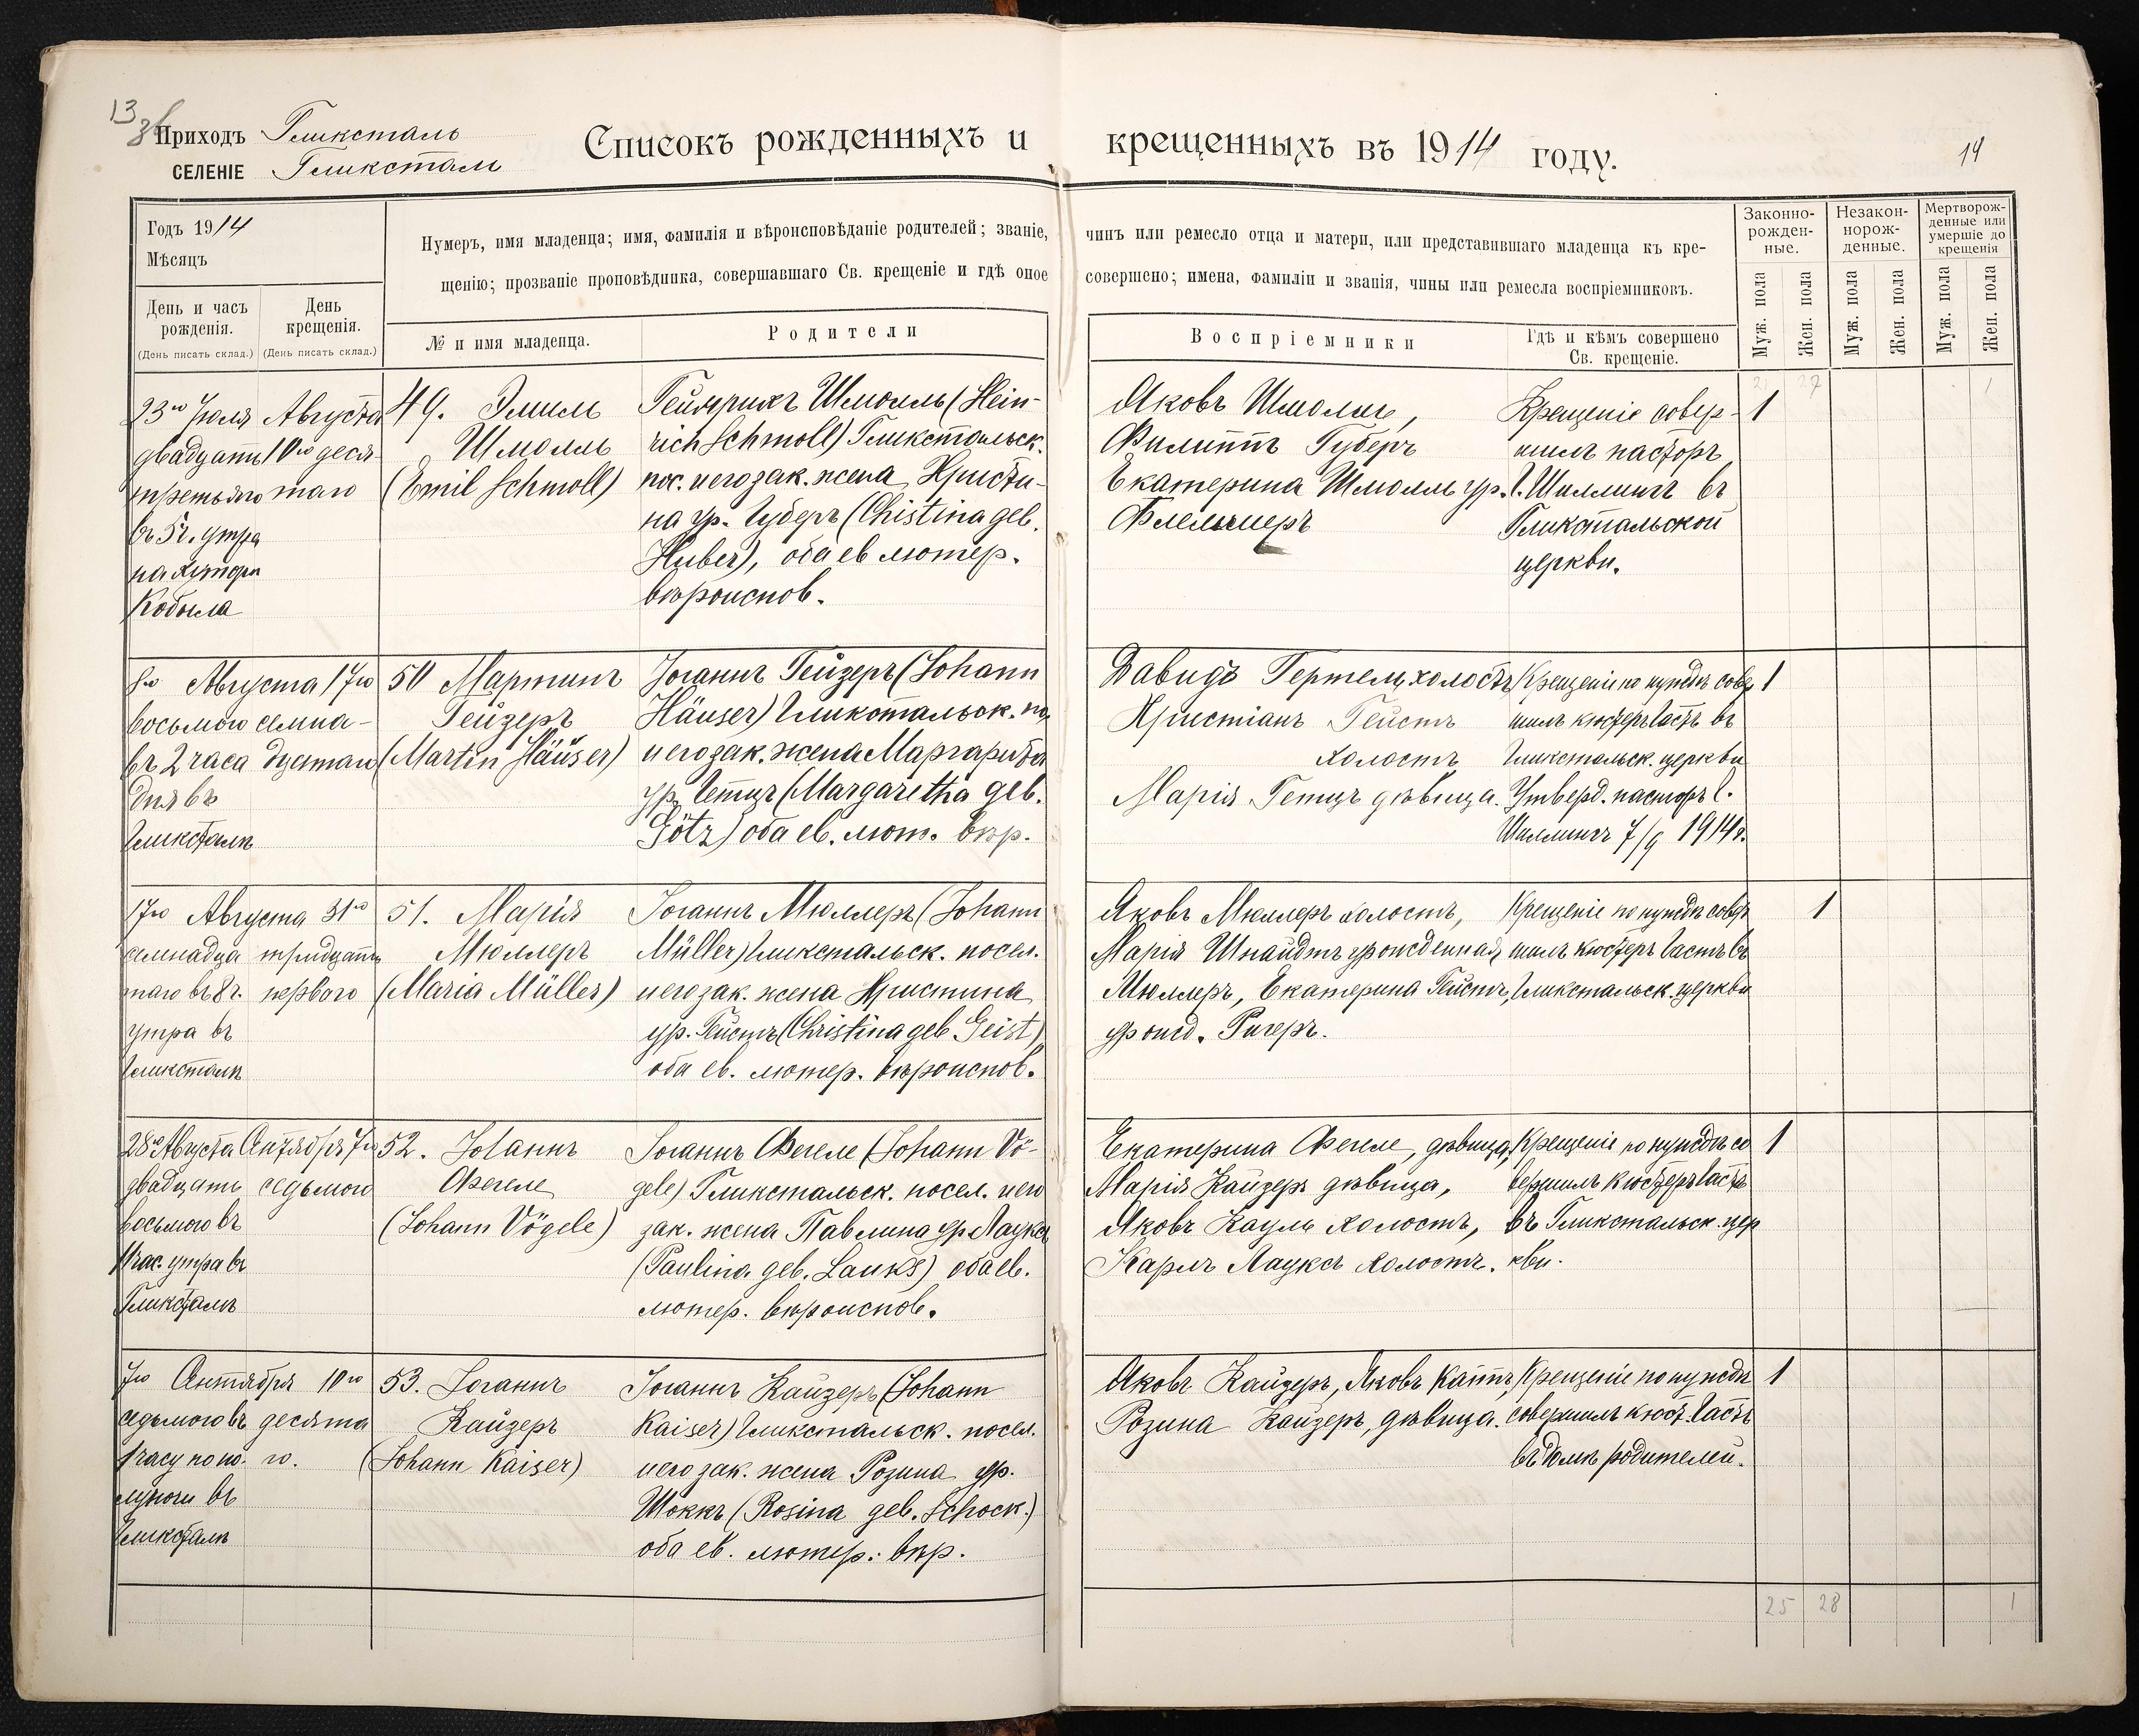 13
Приходъ Гликсталь
СЕЛЕНІЕ Гликсталь
Списокъ рожденныхъ и крещенныхъ въ 1914 году.
14
Годъ 1914
Мѣсяцъ
День и часъ рожденія.
(День писать склад.)
День крещенія.
(День писать склад.)
Нумеръ, имя младенца; имя, фамилія и вѣроисповѣданіе родителей; званіе, чинъ или ремесло отца и матери, или представившаго младенца къ кре-
щенію; прозваніе проповѣдника, совершавшаго Св. крещеніе и гдѣ оное совершено; имена, фамиліи и званія, чины или ремесла воспріемниковъ.
№ и имя младенца.
Родители
Воспріемники
Гдѣ и кѣмъ совершено
Св. крещеніе.
Законно-
рожден-
ные.
Незакон-
норож-
денные.
Мертворож-
денные или
умершіе до
крещенія
Муж. пола
Жен. пола
Муж. пола
Жен. пола
Муж. пола
Жен. пола
27
1
23го Іюля
двадцать
третьяго
въ 5ч. утра
на хуторѣ
Кобыла
Августа
10го деся-
таго
49. Эмиль
Шмолль
(Emil Schmoll)
Гейнрихъ Шмолль (Hein-
rich Schmoll) Гликстальск.
пос. и его зак. жена Христи-
на ур. Губеръ (Christina geb.
Huber), оба ев лютер.
вѣроиспов.
Яковъ Шмолль,
Филиппъ Губеръ
Екатерина Шмолль ур.
Крещеніе совер-
шилъ пасторъ
Г. Шиллингъ въ
Гликстальской
церкви.
1
8го Августа
восьмого
въ 2 часа
дня въ
Гликсталѣ
17го
семна-
дцатаго
50 Мартинъ
Гейзеръ
(Martin Häuser)
Іоганнъ Гейзеръ (Johann
Häuser) Гликстальск. по.
и его зак. жена Маргарита
ур. Гетцъ (Margaretha geb.
Götz) оба ев. лют. вѣр.
Давидъ Гертель, холостъ
Христіанъ Гейстъ
холостъ
Марія Гетцъ дѣвица.
Крещеніе по нуждѣ совер
шилъ кюстеръ Гастъ въ
Гликстальск. церкви
Утверд. пасторъ Г.
Шиллингъ 7/9 1914 г.
1
17го Августа
семнадца
таго въ 8ч.
утра въ
Гликсталѣ
31го
тридцать
перваго
51. Марія
Мюллеръ
(Maria Müller)
Іоганнъ Мюллеръ (Johann
Müller) Гликстальск. посел.
и его зак. жена Христина
ур. Гейстъ (Christina geb. Geist)
оба ев. лютер. вѣроиспов.
Яковъ Мюллеръ холостъ,
Марія Шнайдтъ урожденная
Мюллеръ, Екатерина Гейстъ,
урожд. Ригеръ.
Крещеніе по нуждѣ совер
шилъ кюстеръ Гастъ въ
Гликстальск. церкви
1
28го Августа
двадцать
восьмого въ
утра въ
Гликсталѣ
Сентября 7го
седьмого
52. Іоганнъ
Фегеле
(Johann Vögele)
Іоганнъ Фегеле (Johann Vö-
gele) Гликстальск. посел. и его
зак. жена Павлина ур Лауксъ
(Paulina geb. Lauks) оба ев.
лютер. вѣроиспов.
Екатерина Фегеле, дѣвица,
Марія Кайзеръ дѣвица,
Яковъ Кауль холостъ,
Карлъ Лауксъ холостъ.
Крещеніе по нуждѣ со
вершилъ кюстеръ Гастъ
въ Гликстальск. цер
кви.
1
7го Сентября
седьмого въ
1 часу по по-
луночи въ
Гликсталѣ
10го
десята
го.
53. Іоганнъ
Кайзеръ
(Johann Kaiser)
Іоганнъ Кайзеръ (Johann
Kaiser) Гликстальск. посел.
и его зак. жена Розина ур.
Шоккъ (Rosina geb. Schock.)
оба ев. лютер. вѣр.
Яковъ Кайзеръ, Яковъ Каттъ,
Розина Кайзеръ, дѣвица.
Крещеніе по нуждѣ
совершилъ кюст. Гастъ
въ домѣ родителей.
1
25 28 1